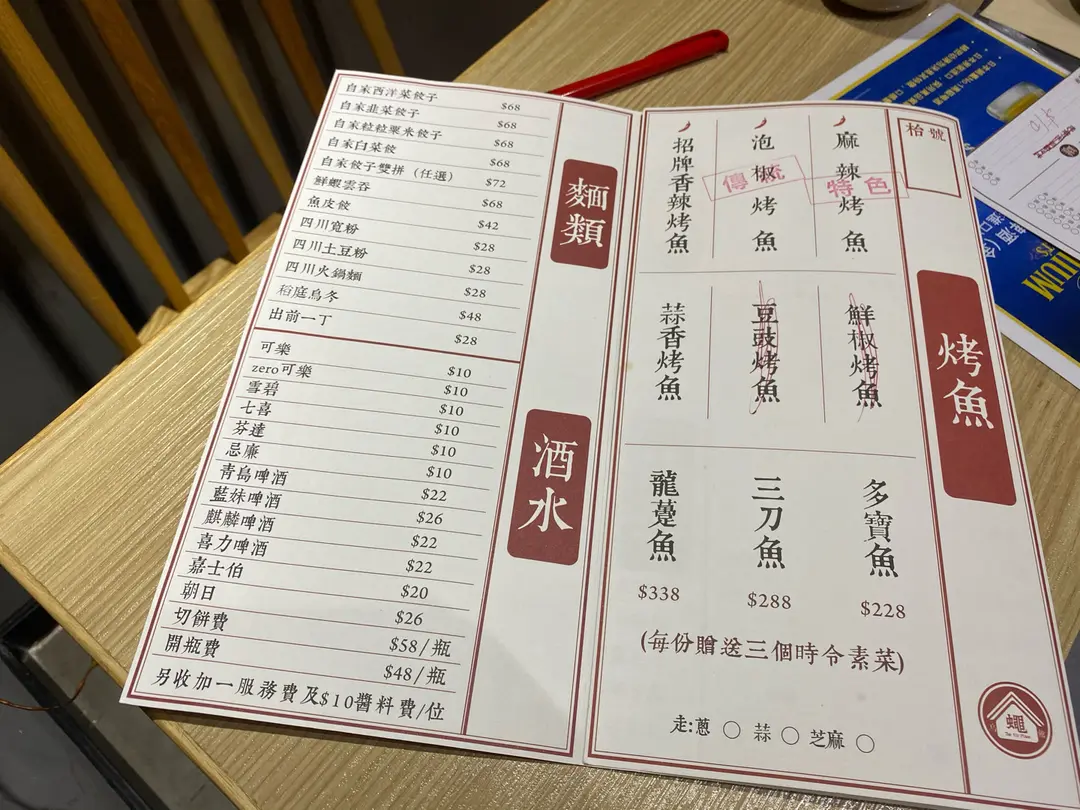 自家西洋菜餃子 $68
自家韭菜餃子 $68
自家粒粒粟米餃子 $68
自家白菜餃 $68
自家餃子雙拼（任選） $72
鮮蝦雲吞 $68
魚皮餃 $42
四川寬粉 $28
四川土豆粉 $28
四川火鍋麵 $28
稻庭烏冬 $48
出前一丁 $28
麵類
可樂 $10
zero可樂 $10
雪碧 $10
七喜 $10
芬達 $10
忌廉 $10
青島啤酒 $22
藍妹啤酒 $26
麒麟啤酒 $22
喜力啤酒 $22
嘉士伯 $20
朝日 $26
切餅費 $58/瓶
開瓶費 $48/瓶
酒水
另收加一服務費及$10醬料費/位
枱號
烤魚
麻辣烤魚
特色
泡椒烤魚
傳統
招牌香辣烤魚
鮮椒烤魚
豆豉烤魚
蒜香烤魚
多寶魚
$228
三刀魚
$288
龍躉魚
$338
(每份贈送三個時令素菜)
走:蔥 ○ 蒜 ○ 芝麻 ○